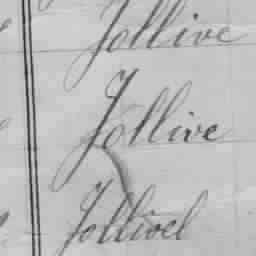 Jollive
Jollive
Jollivel